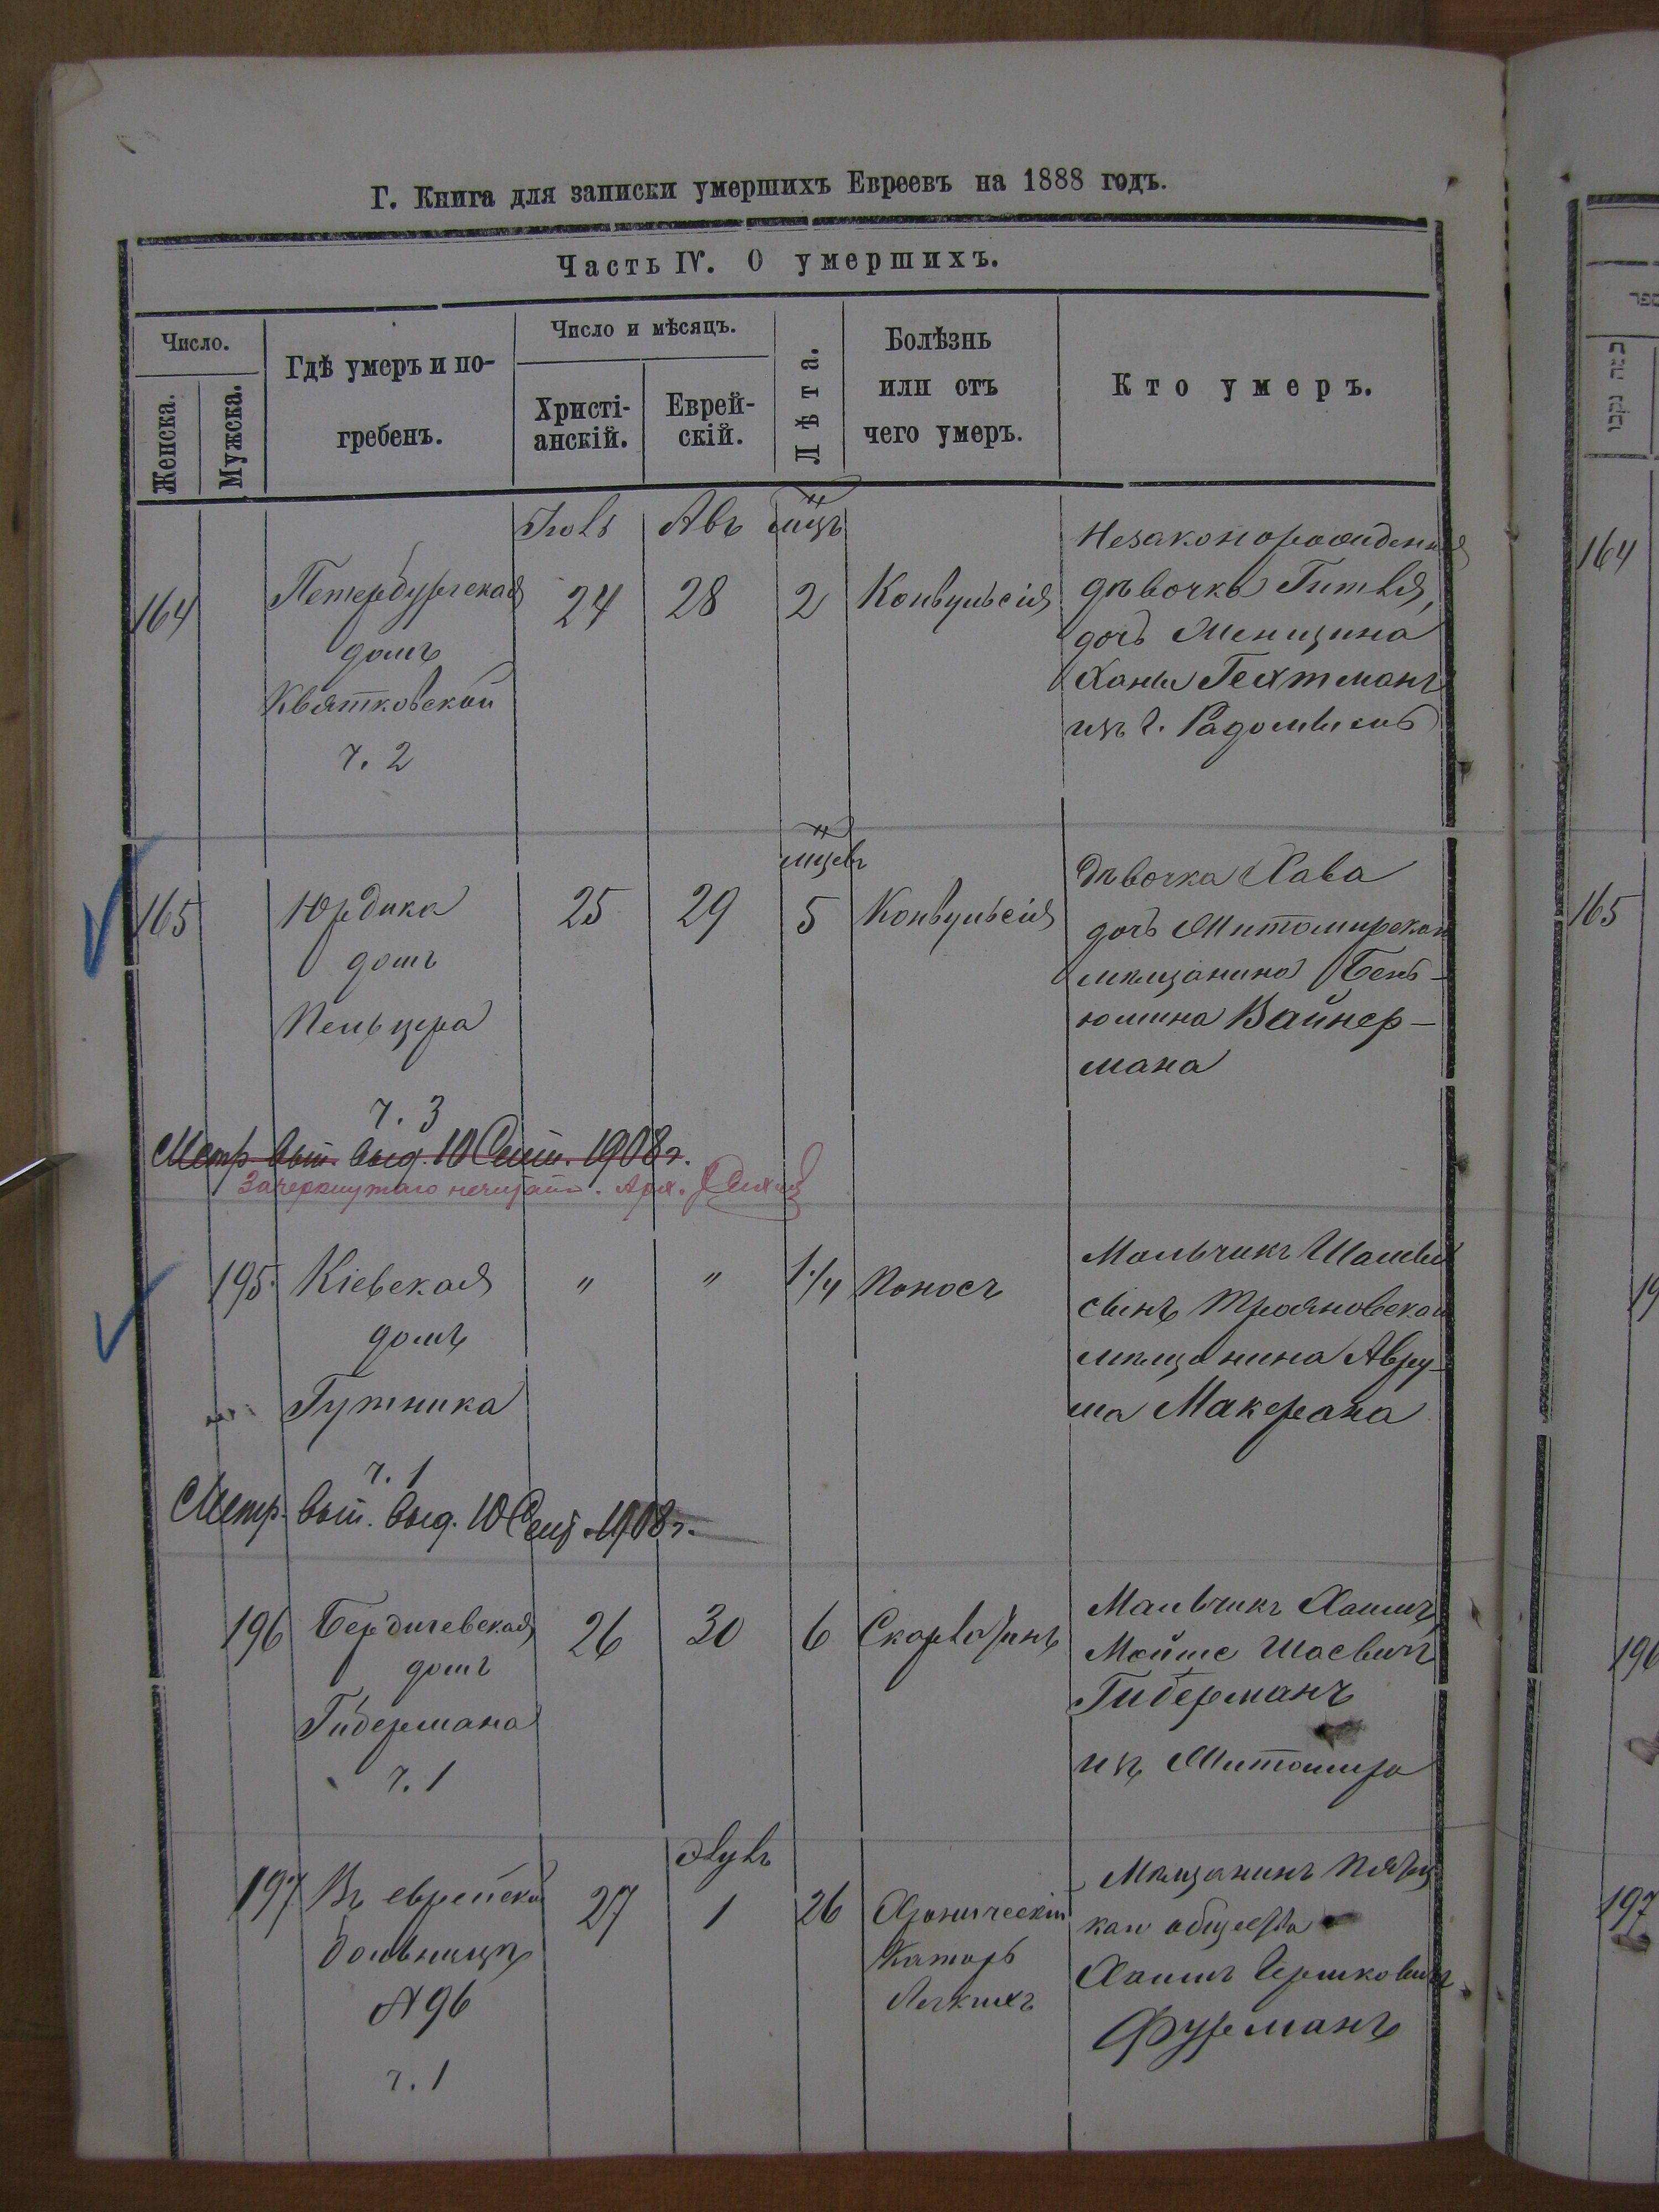 Г. Книга для записки умершихъ Евреевъ на 1888 годъ.
Часть IV. О умершихъ.
Число.
Женска.
Мужска.
Гдѣ умеръ и по-
гребенъ.
Число и мѣсяцъ.
Христі-
анскій.
Еврей-
скій.
Лѣта.
Болѣзнь
или отъ
чего умеръ.
Кто умеръ.
Іюль Авъ мцъ
164
Петербургская
домъ
Квятковской
ч. 2
24
28
2
Конвульсія
Незаконорожденная
дѣвочка Гитля,
дочь
Ханы Гехтманъ
изъ г. Радомысль
мцевъ
165
Юрдика
домъ
Пельцера
ч. 3
25
29
5
Конвульсія
Дѣвочка Хава
дочь Житомирскаго
мѣщанина Бень-
юмина Вайнер-
мана
Метр. вып. выд. 10 Сент. 1908 г.
Зачеркнутаго нечитать.
195
Кіевская
домъ
Гутника
ч. 1
"
"
1 1/4
Поносъ
Мальчикъ
сынъ Трояновскаго
мѣщанина Авру-
ма Макерана
Метр. вып. выд. 10 Сент. 1908 г.
196
Бердичевская
домъ
Гибермана
ч. 1
26
30
6
Скарлатинъ
Мальчикъ Хаимъ
Мойше Шаевичъ
Гиберманъ
изъ Житомира
Элулъ
197
Въ еврейской
больницѣ
№ 96
ч. 1
27
1
26
Хроническій
Катаръ
Легкихъ
Мѣщанинъ
каго общества
Хаимъ Гершковичъ
Фурманъ
164
165
196
197